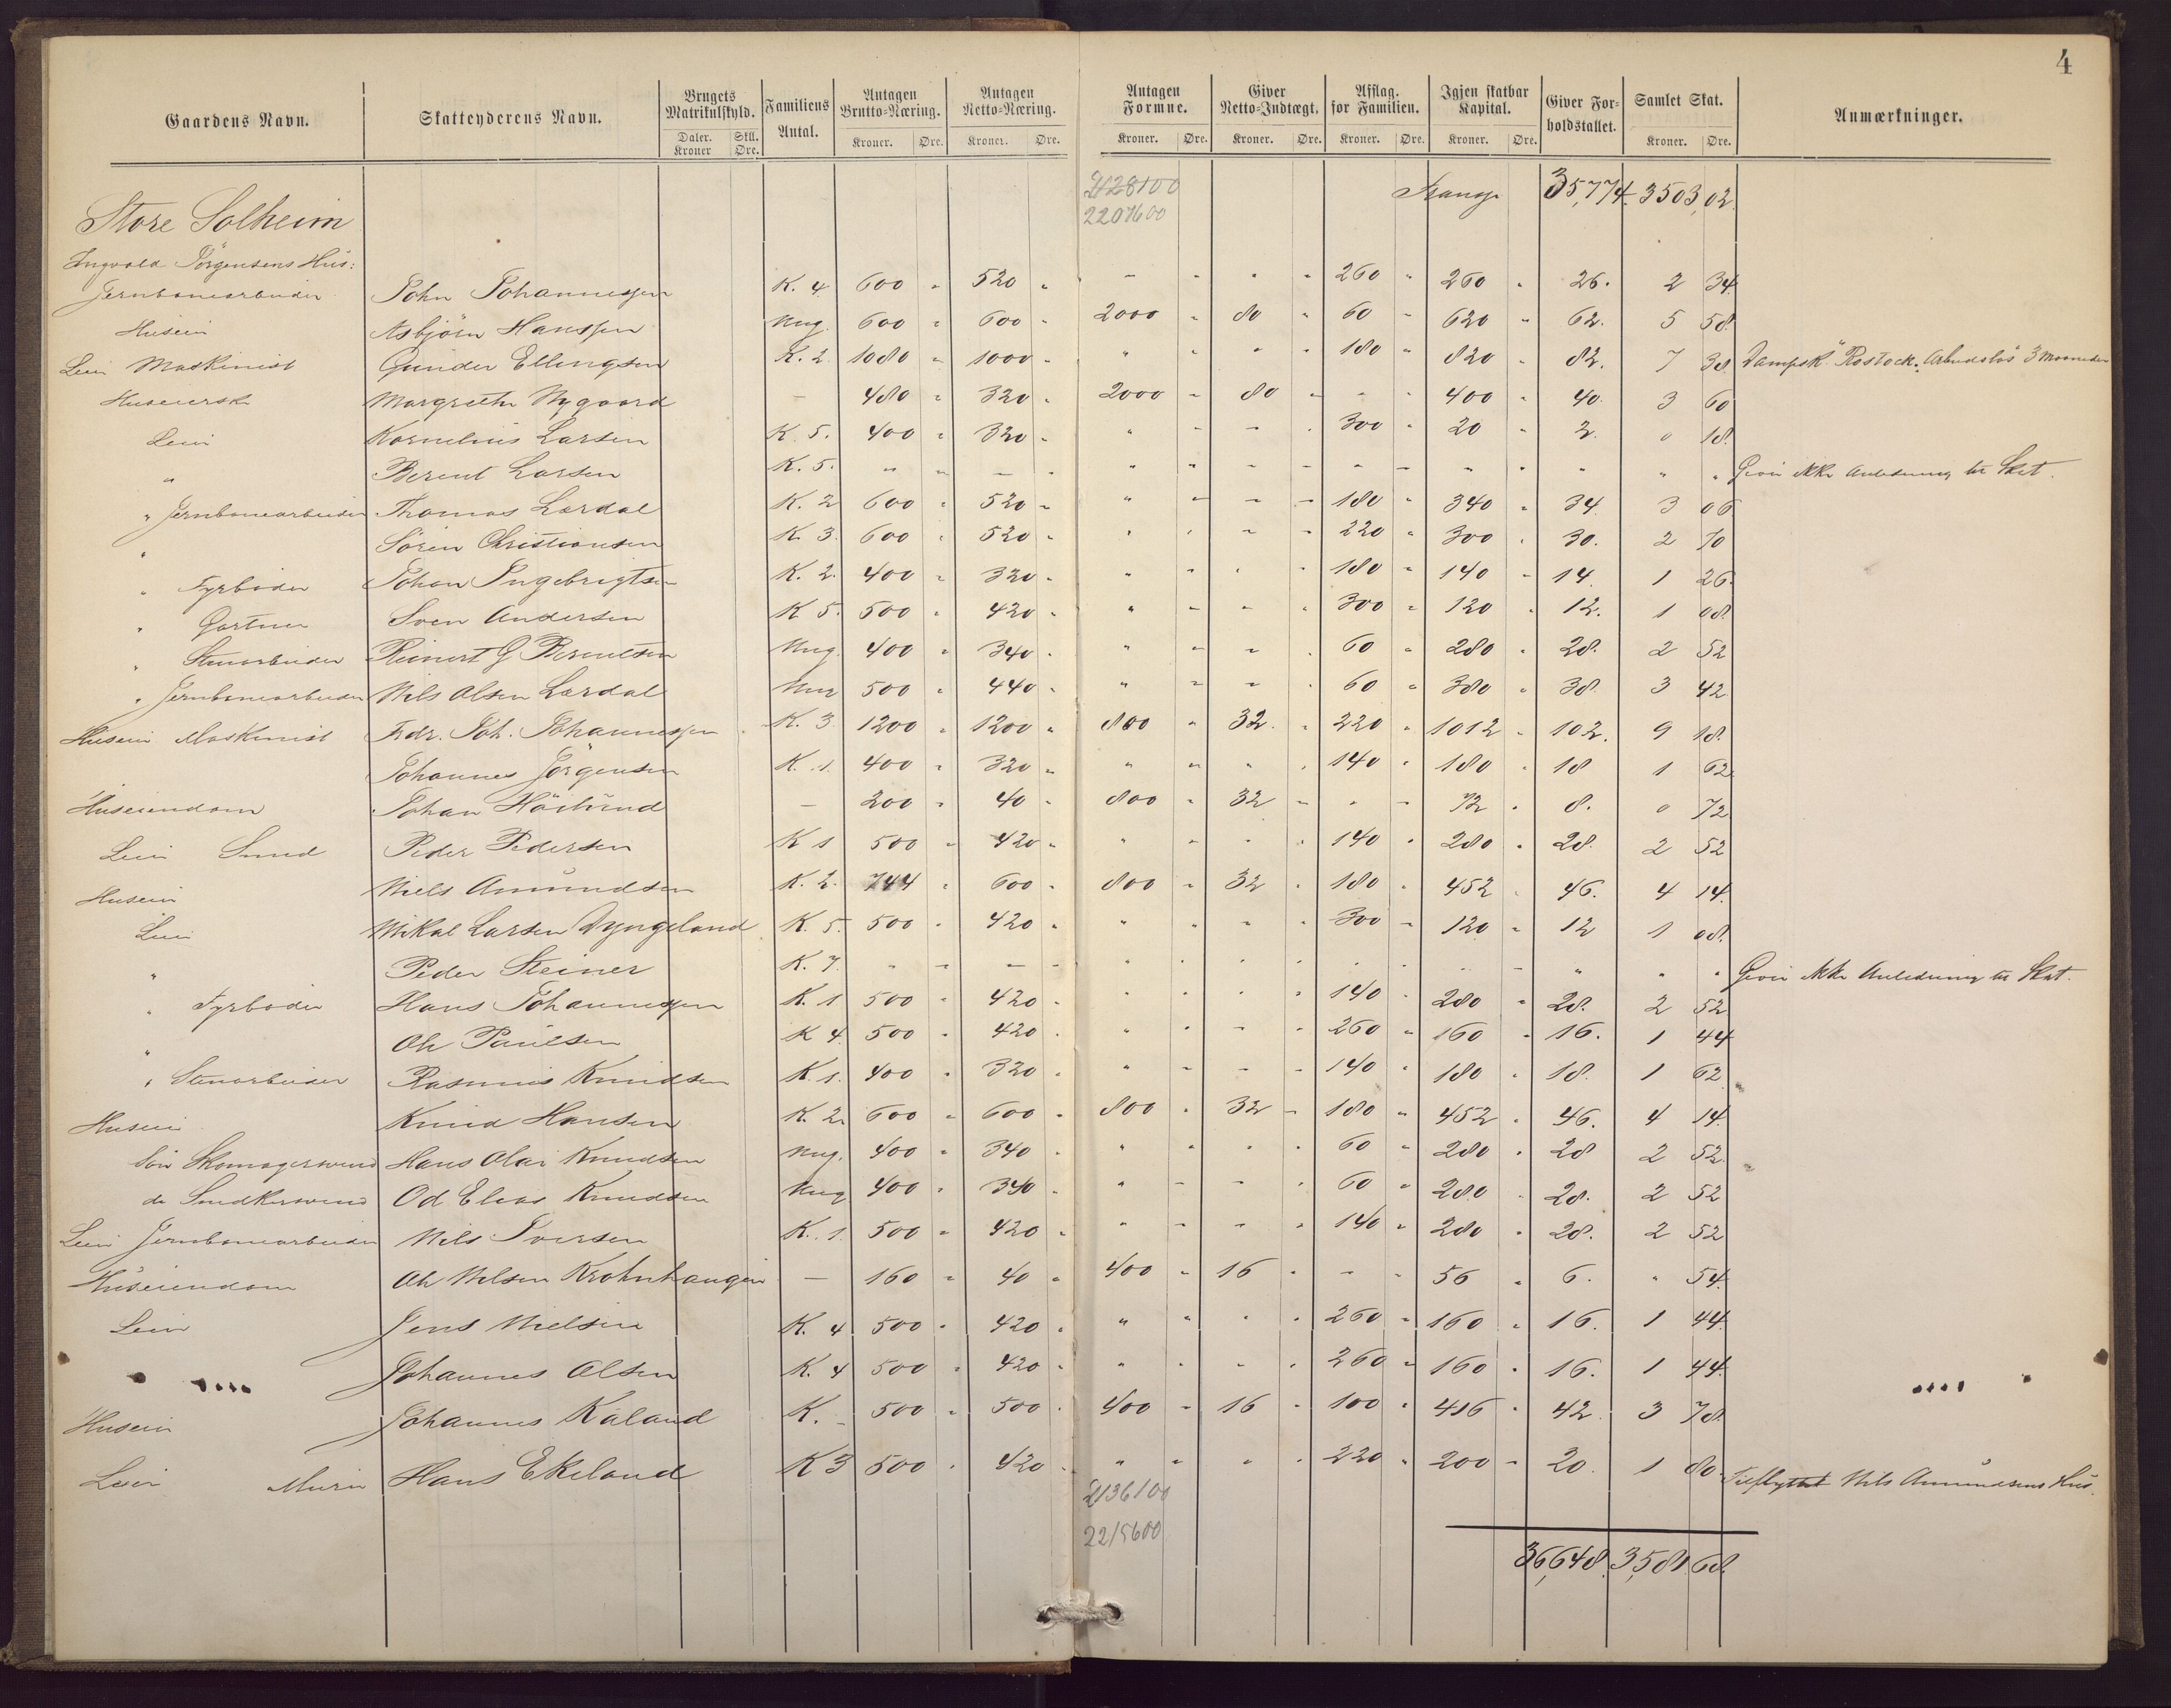 4
Gaardens Navn. Skatteyderens Navn. Brugets Matrikulskyld. Daler. Kroner Skll. Øre. Familiens Antal. Antagen Brutto=Næring. Kroner. Øre. Antagen Netto=Næring. Kroner. Øre. Antagen Formue. Kroner. Øre. Giver Netto=Indtægt. Kroner. Øre. Afslag. for Familien. Kroner. Øre. Igjen skatbar Kapital. Kroner. Øre. Giver For= holdstallet. Samlet Skat. Kroner. Øre. Anmærkninger.
2128100 Transp. 35,774. 3503,02.
Store Solheim 2207600
Ingvald Jörgensens Hus:
Jernbanearbeider John Johannessen K. 4 600 " 520 " - " " " 260 " 260 " 26. 2 34.
Huseier Asbjörn Hanssen Ung. 600 " 600 " 2000 " 80 " 60 " 620 " 62. 5 58.
Leier Maskinist Gunder Ellingsen K. 2. 1080 " 1000 " " " " " 180 " 820 " 82. 7 38. Dampsk. "Rostock". Arbeidslös 3 Maaneder
Huseierske Margrethe Nygaard - 480 " 320 " 2000 " 80 " - " 400 " 40. 3 60
Leier Kornelius Larsen K. 5. 400 " 320 " " " " " 300 " 20 " 2. 0 18.
" Berent Larsen K. 5. " " - " " " " " " " " " " " " Giver ikke Anledning til Skat.
" Jernbanearbeider Thomas Lærdal K. 2 600 " 520 " " " " " 180 " 340 " 34. 3 06
" Sören Christiansen K. 3. 600 " 520 " " " " " 220 " 300 " 30. 2 70
" Fyrböder Johan Ingebrigtsen K. 2. 400 " 320 " " " " " 180 " 140 " 14. 1 26.
" Gartner Sven Andersen K 5. 500 " 420 " " " " " 300 " 120 " 12. 1 08.
" Stenarbeider Reinert G Berentsen Ung. 400 " 340 " " " " " 60 " 280 " 28. 2 52
" Jernbanearbeider Nils Olsen Lærdal Ung 500 " 440 " " " " " 60 " 380 " 38. 3 42
Huseier Maskinist Fredr. Joh. Johannessen K. 3. 1200 " 1200 " 800 " 32. " 220 " 1012 " 102. 9 18.
Johannes Jörgensen K. 1. 400 " 320 " " " " " 140 " 180 " 18 1 62
Huseiendom Johan - 200 " 40 " 800 " 32 " " " 72 " 8. 0 72
Leier Smed Peder Pedersen K 1 500 " 420 " " " " " 140 " 280 " 28. 2 52
Huseier Niels Amundsen K. 2. 744 " 600 " 800 " 32 " 180 " 452 " 46. 4 14.
Leier Mikal Larsen Dyngeland K. 5. 500 " 420 " " " " " 300 " 120 " 12 1 08.
" Peder Steiner K. 7. " " - " " " " " " " " " " " " Giver ikke Anledning til Skat.
" Fyrböder Hans Johannessen K. 1. 500 " 420 " " " " " 140 " 280 " 28. 2 52
" Ole Paulsen K 4. 500 " 420 " " " " " 260 " 160 " 16. 1 44
" Stenarbeider Rasmus Knudsen K. 1. 400 " 320 " " " " " 140 " 180 " 18. 1 62
Huseier Knud Hansen K. 2. 600 " 600 " 800 " 32 " 180 " 452 " 46. 4 14.
Sön Skomagersvend Hans Olai Knudsen Ung. 400 " 340 " " " " " 60 " 280 " 28 2 52.
do Smedkersvend Od Elias Knudsen Ung 400 " 340 " " " " " 60 " 280 " 28. 2 52
Leier Jernbanearbeider Nils Iversen K. 1. 500 " 420 " " " " " 140 " 280 " 28. 2 52
Huseiendom Ole Nilsen Krohnhaugen - 160 " 40 " 400 " 16 " - " 56 " 6. " 54.
Leier Jens Nielsen K. 4 500 " 420 " " " " " 260 " 160 " 16. 1 44.
" Johannes Olsen K. 4 500 " 420 " " " " " 260 " 160 " 16. 1 44.
Huseier Johannes Kaland K. - 500 " 500 " 400 " 16 " 100 " 416 " 42. 3 78.
Leier Murer Hans Ekeland K 3 500 " 420 " " " " " 220 " 200 " 20. 1 80. Tilflyttet Nils Amundsens Hus.
2136100
2215600
36,648. 3,581 68.